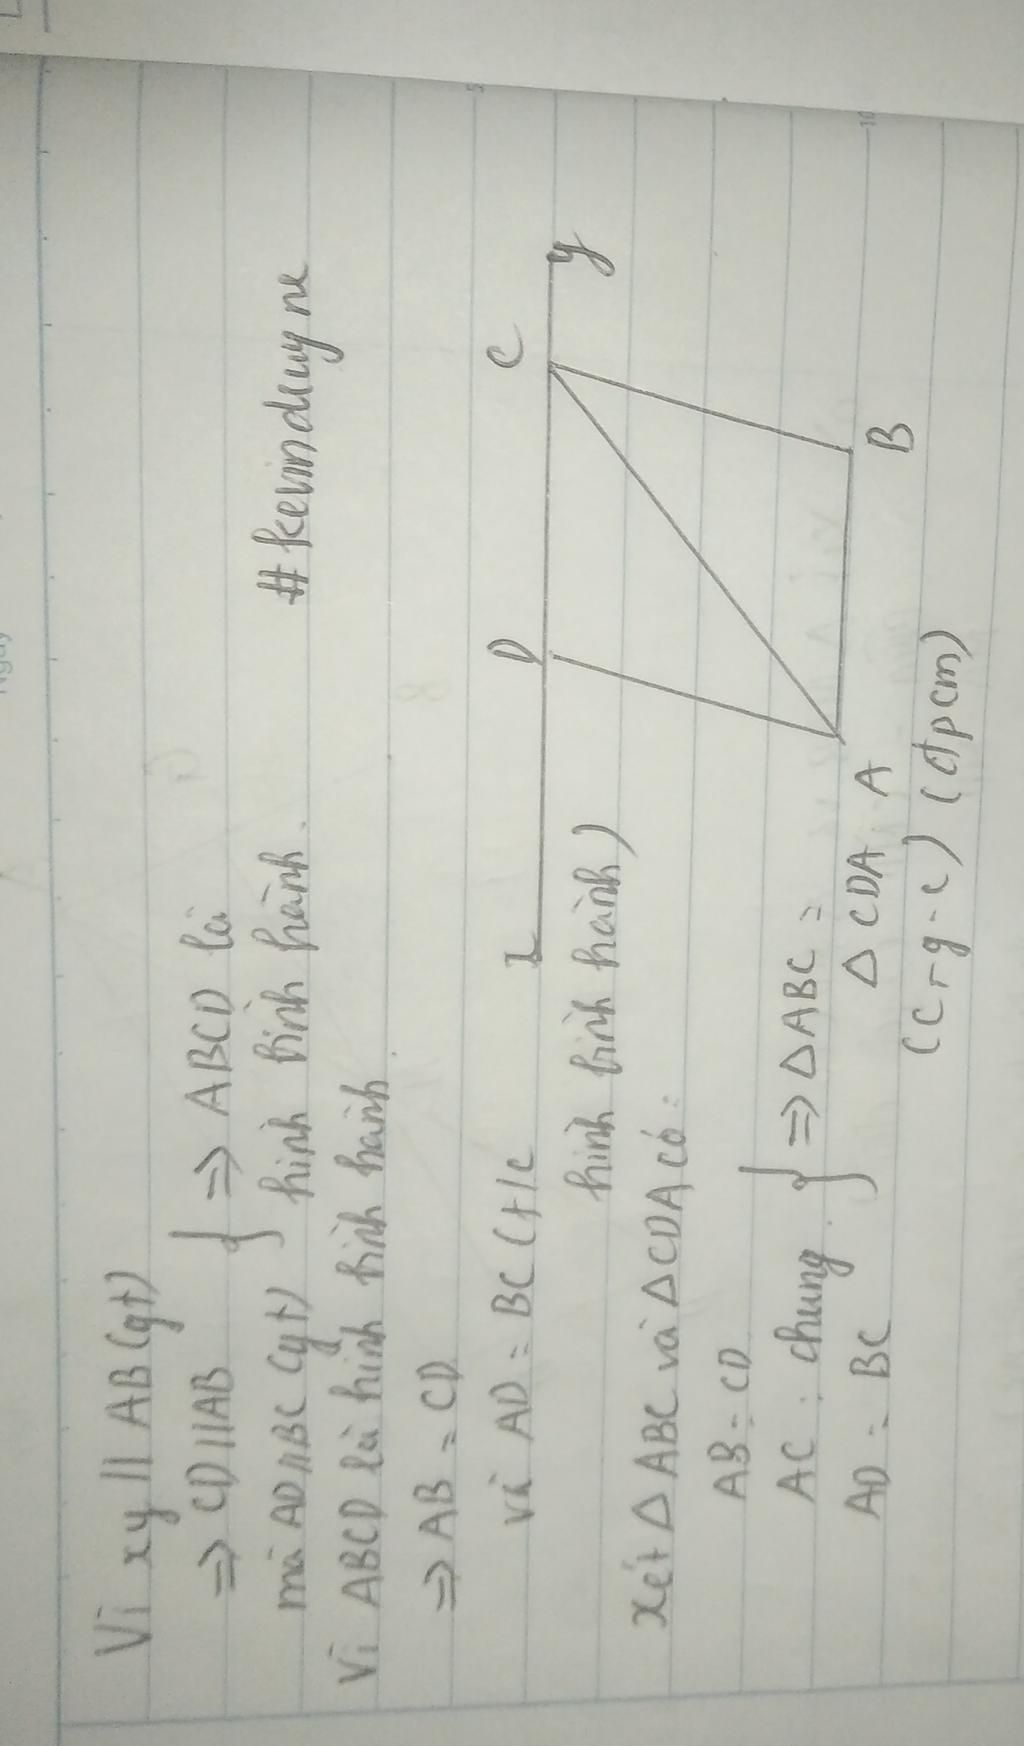 Vì xy // AB (gt)
=> CD // AB
mà AD // BC (gt)
} => ABCD là
hình bình hành.
#kevinduyne
Vì ABCD là hình bình hành
=> AB = CD
và AD = BC (t/c
hình bình hành)
xét Δ ABC và Δ CDA có:
AB = CD
AC : chung
AD = BC
} => Δ ABC =
Δ CDA
(C-g-c) (đpcm)
x D C y
A B